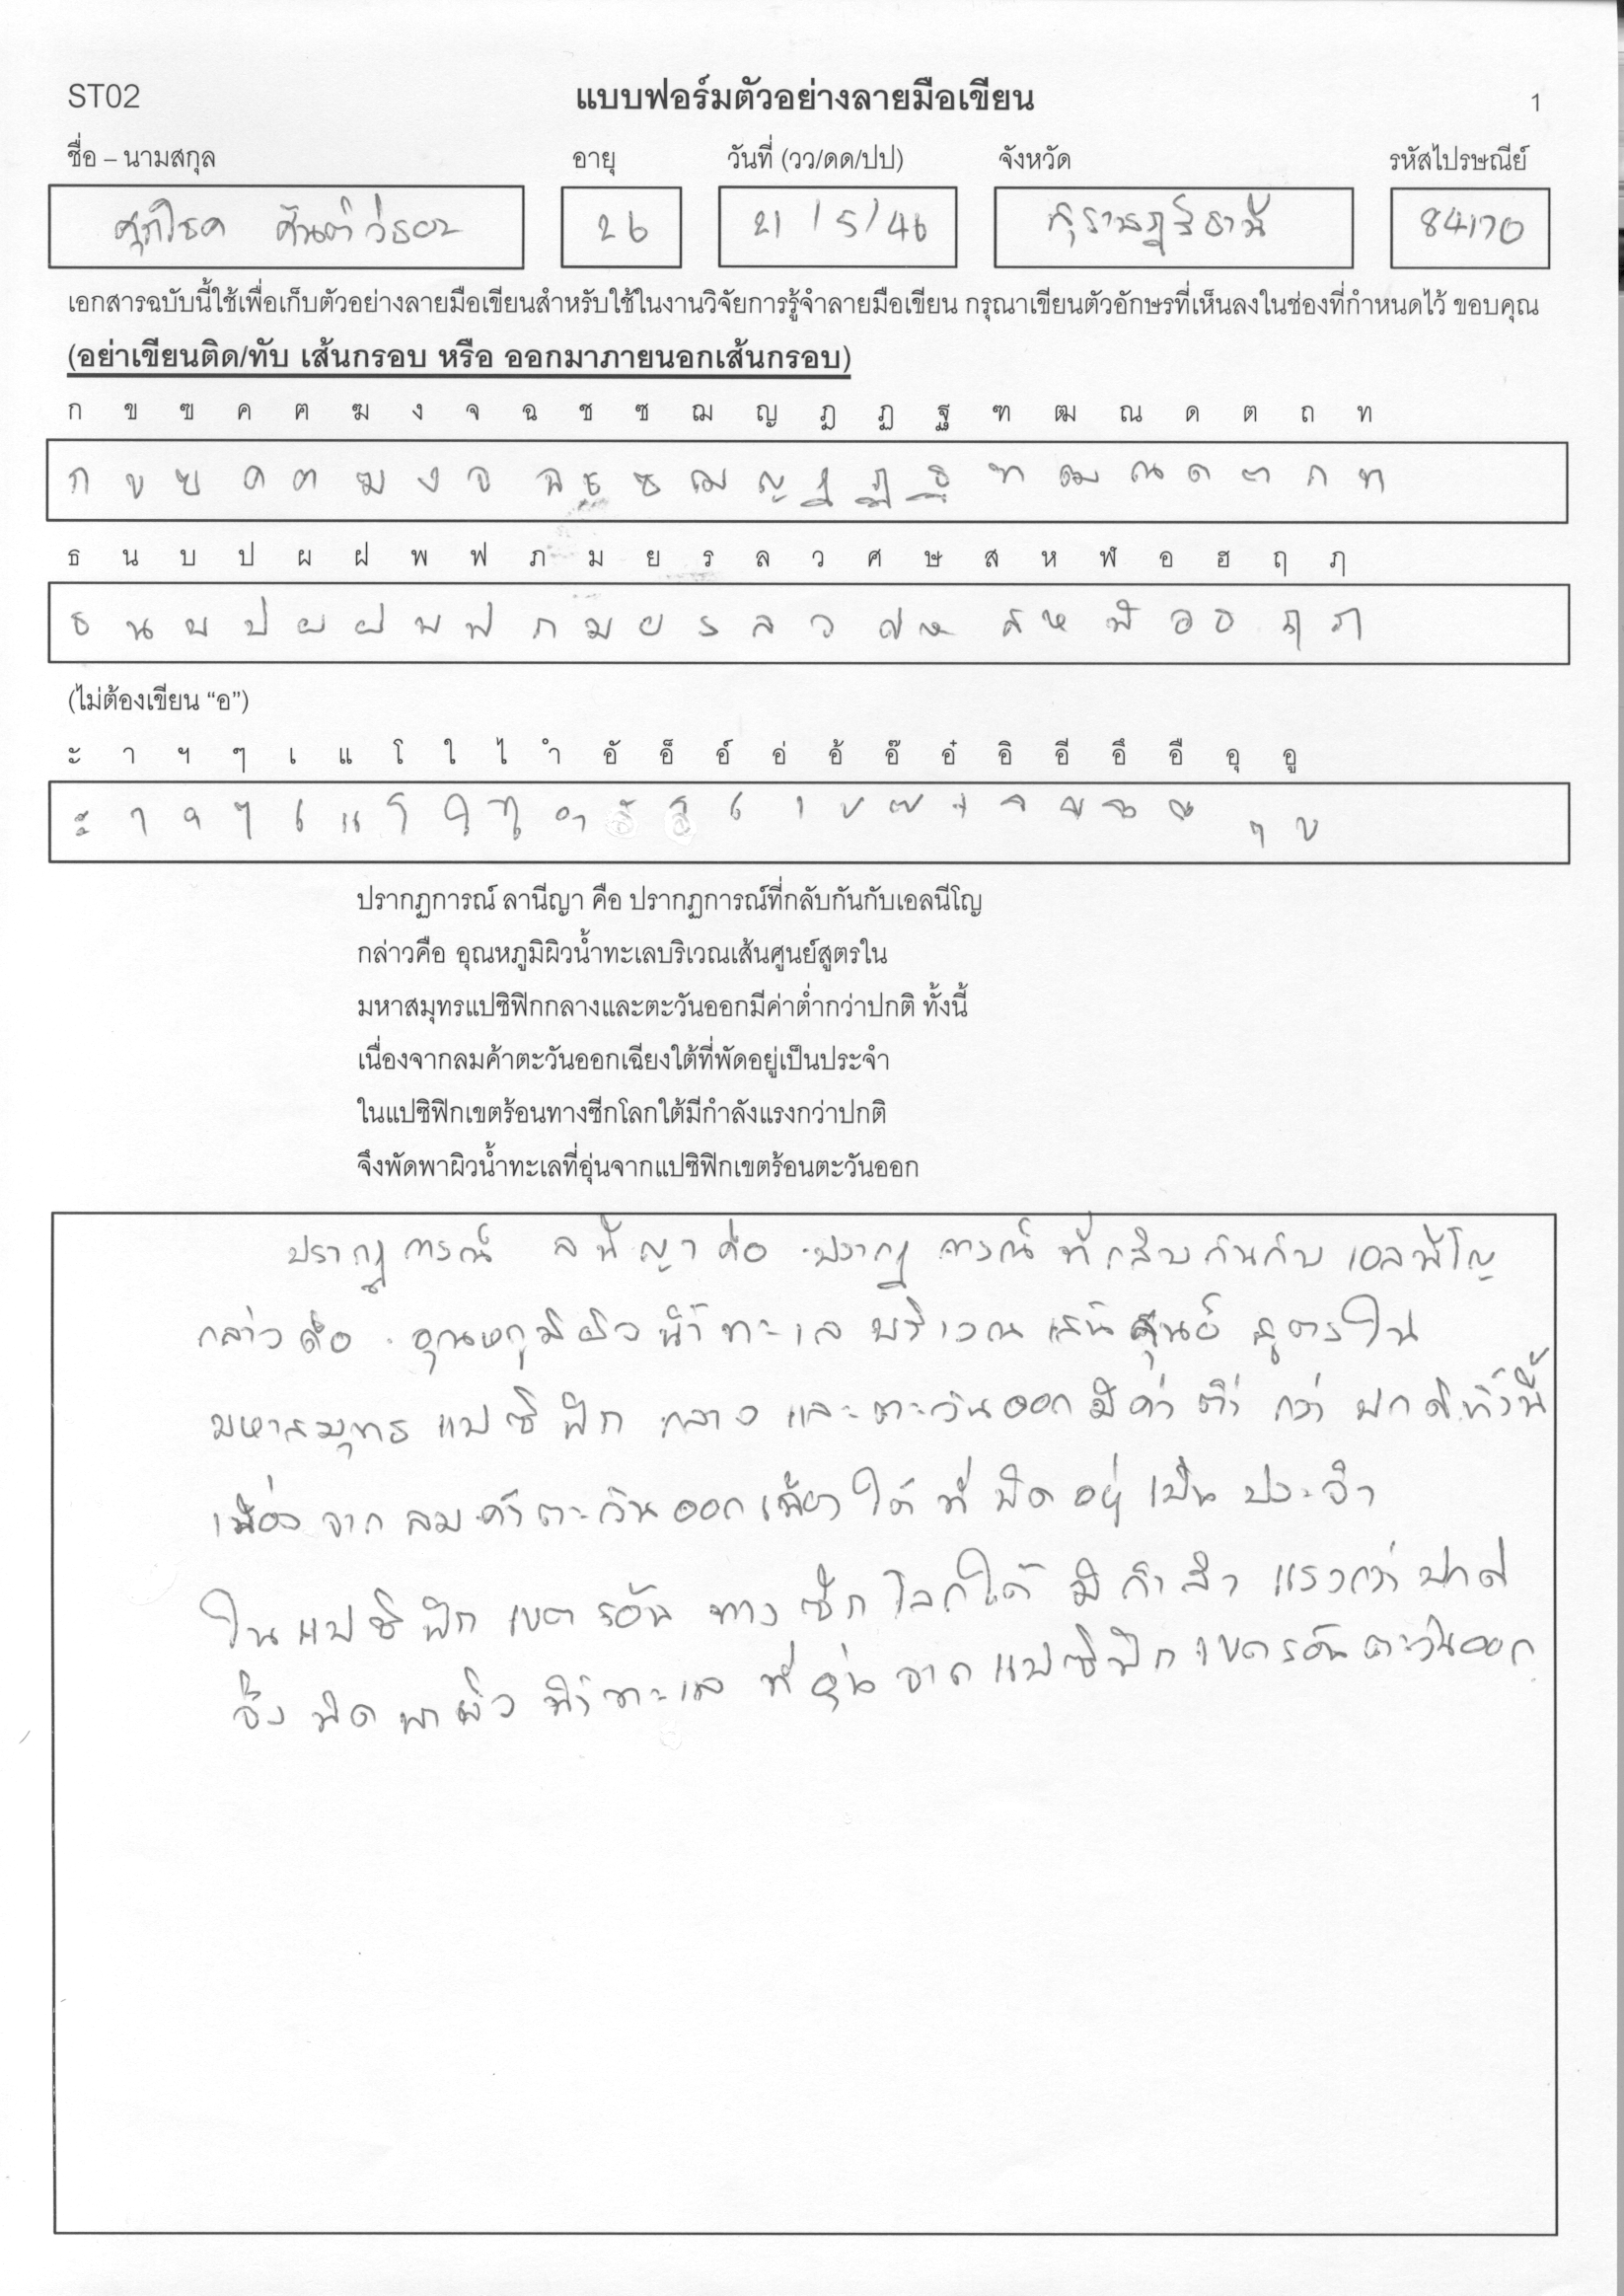 ST02 แบบฟอร์มตัวอย่างลายมือเขียน 1
ชื่อ – นามสกุล อายุ วันที่ (วว/ดด/ปป) จังหวัด รหัสไปรษณีย์
ศุภโชค 26 21 / 5 / 46 สุราษฎร์ธานี 84170
เอกสารฉบับนี้ใช้เพื่อเก็บตัวอย่างลายมือเขียนสำหรับใช้ในงานวิจัยการรู้จำลายมือเขียน กรุณาเขียนตัวอักษรที่เห็นลงในช่องที่กำหนดไว้ ขอบคุณ
(อย่าเขียนติด/ทับ เส้นกรอบ หรือ ออกมาภายนอกเส้นกรอบ)
ก ข ฃ ค ฅ ฆ ง จ ฉ ช ซ ฌ ญ ฎ ฏ ฐ ฑ ฒ ณ ด ต ถ ท
ก ข ฃ ค ฅ ฆ ง จ ฉ ช ซ ฌ ญ ฎ ฏ ฐ ฑ ฒ ณ ด ต ถ ท
ธ น บ ป ผ ฝ พ ฟ ภ ม ย ร ล ว ศ ษ ส ห ฬ อ ฮ ฤ ฦ
ธ น บ ป ผ ฝ พ ฟ ภ ม ย ร ล ว ศ ษ ส ห ฬ อ ฮ ฤ ฦ
(ไม่ต้องเขียน “อ”)
ะ า ฯ ๆ เ แ โ ใ ไ ำ อั อ็ อ์ อ่ อ้ อ๊ อ๋ อิ อี อึ อื อุ อู
ะ า ฯ ๆ เ แ โ ใ ไ ำ ั ็ ์ ่ ้ ๊ ๋ ิ ี ึ ื ุ ู
ปรากฏการณ์ ลานีญา คือ ปรากฏการณ์ที่กลับกันกับเอลนีโญ
กล่าวคือ อุณหภูมิผิวน้ำทะเลบริเวณเส้นศูนย์สูตรใน
มหาสมุทรแปซิฟิกกลางและตะวันออกมีค่าต่ำกว่าปกติ ทั้งนี้
เนื่องจากลมค้าตะวันออกเฉียงใต้ที่พัดอยู่เป็นประจำ
ในแปซิฟิกเขตร้อนทางซีกโลกใต้มีกำลังแรงกว่าปกติ
จึงพัดพาผิวน้ำทะเลที่อุ่นจากแปซิฟิกเขตร้อนตะวันออก
ปรากฏการณ์ ลนีญา คือ ปรากฏการณ์ที่กลับกันกับ เอลนีโญ
กล่าวคือ อุณหภูมิผิวน้ำทะเล บริเวณ เส้นศูนย์ สูตรใน
มหาสมุทร แปซิฟิก กลาง และ ตะวันออก มีค่า ต่ำ กว่า ปกติ ทั้งนี้
เนื่อง จาก ลม ค้า ตะวันออกเฉียง ใต้ ที่ พัด อยู่ เป็น ประจำ
ใน แปซิฟิก เขต ร้อน ทาง ซีก โลกใต้ มี กำลัง แรงกว่า ปกติ
จึง พัด พา ผิว น้ำ ทะเล ที่ อุ่น จาก แปซิฟิก เขต ร้อน ตะวันออก